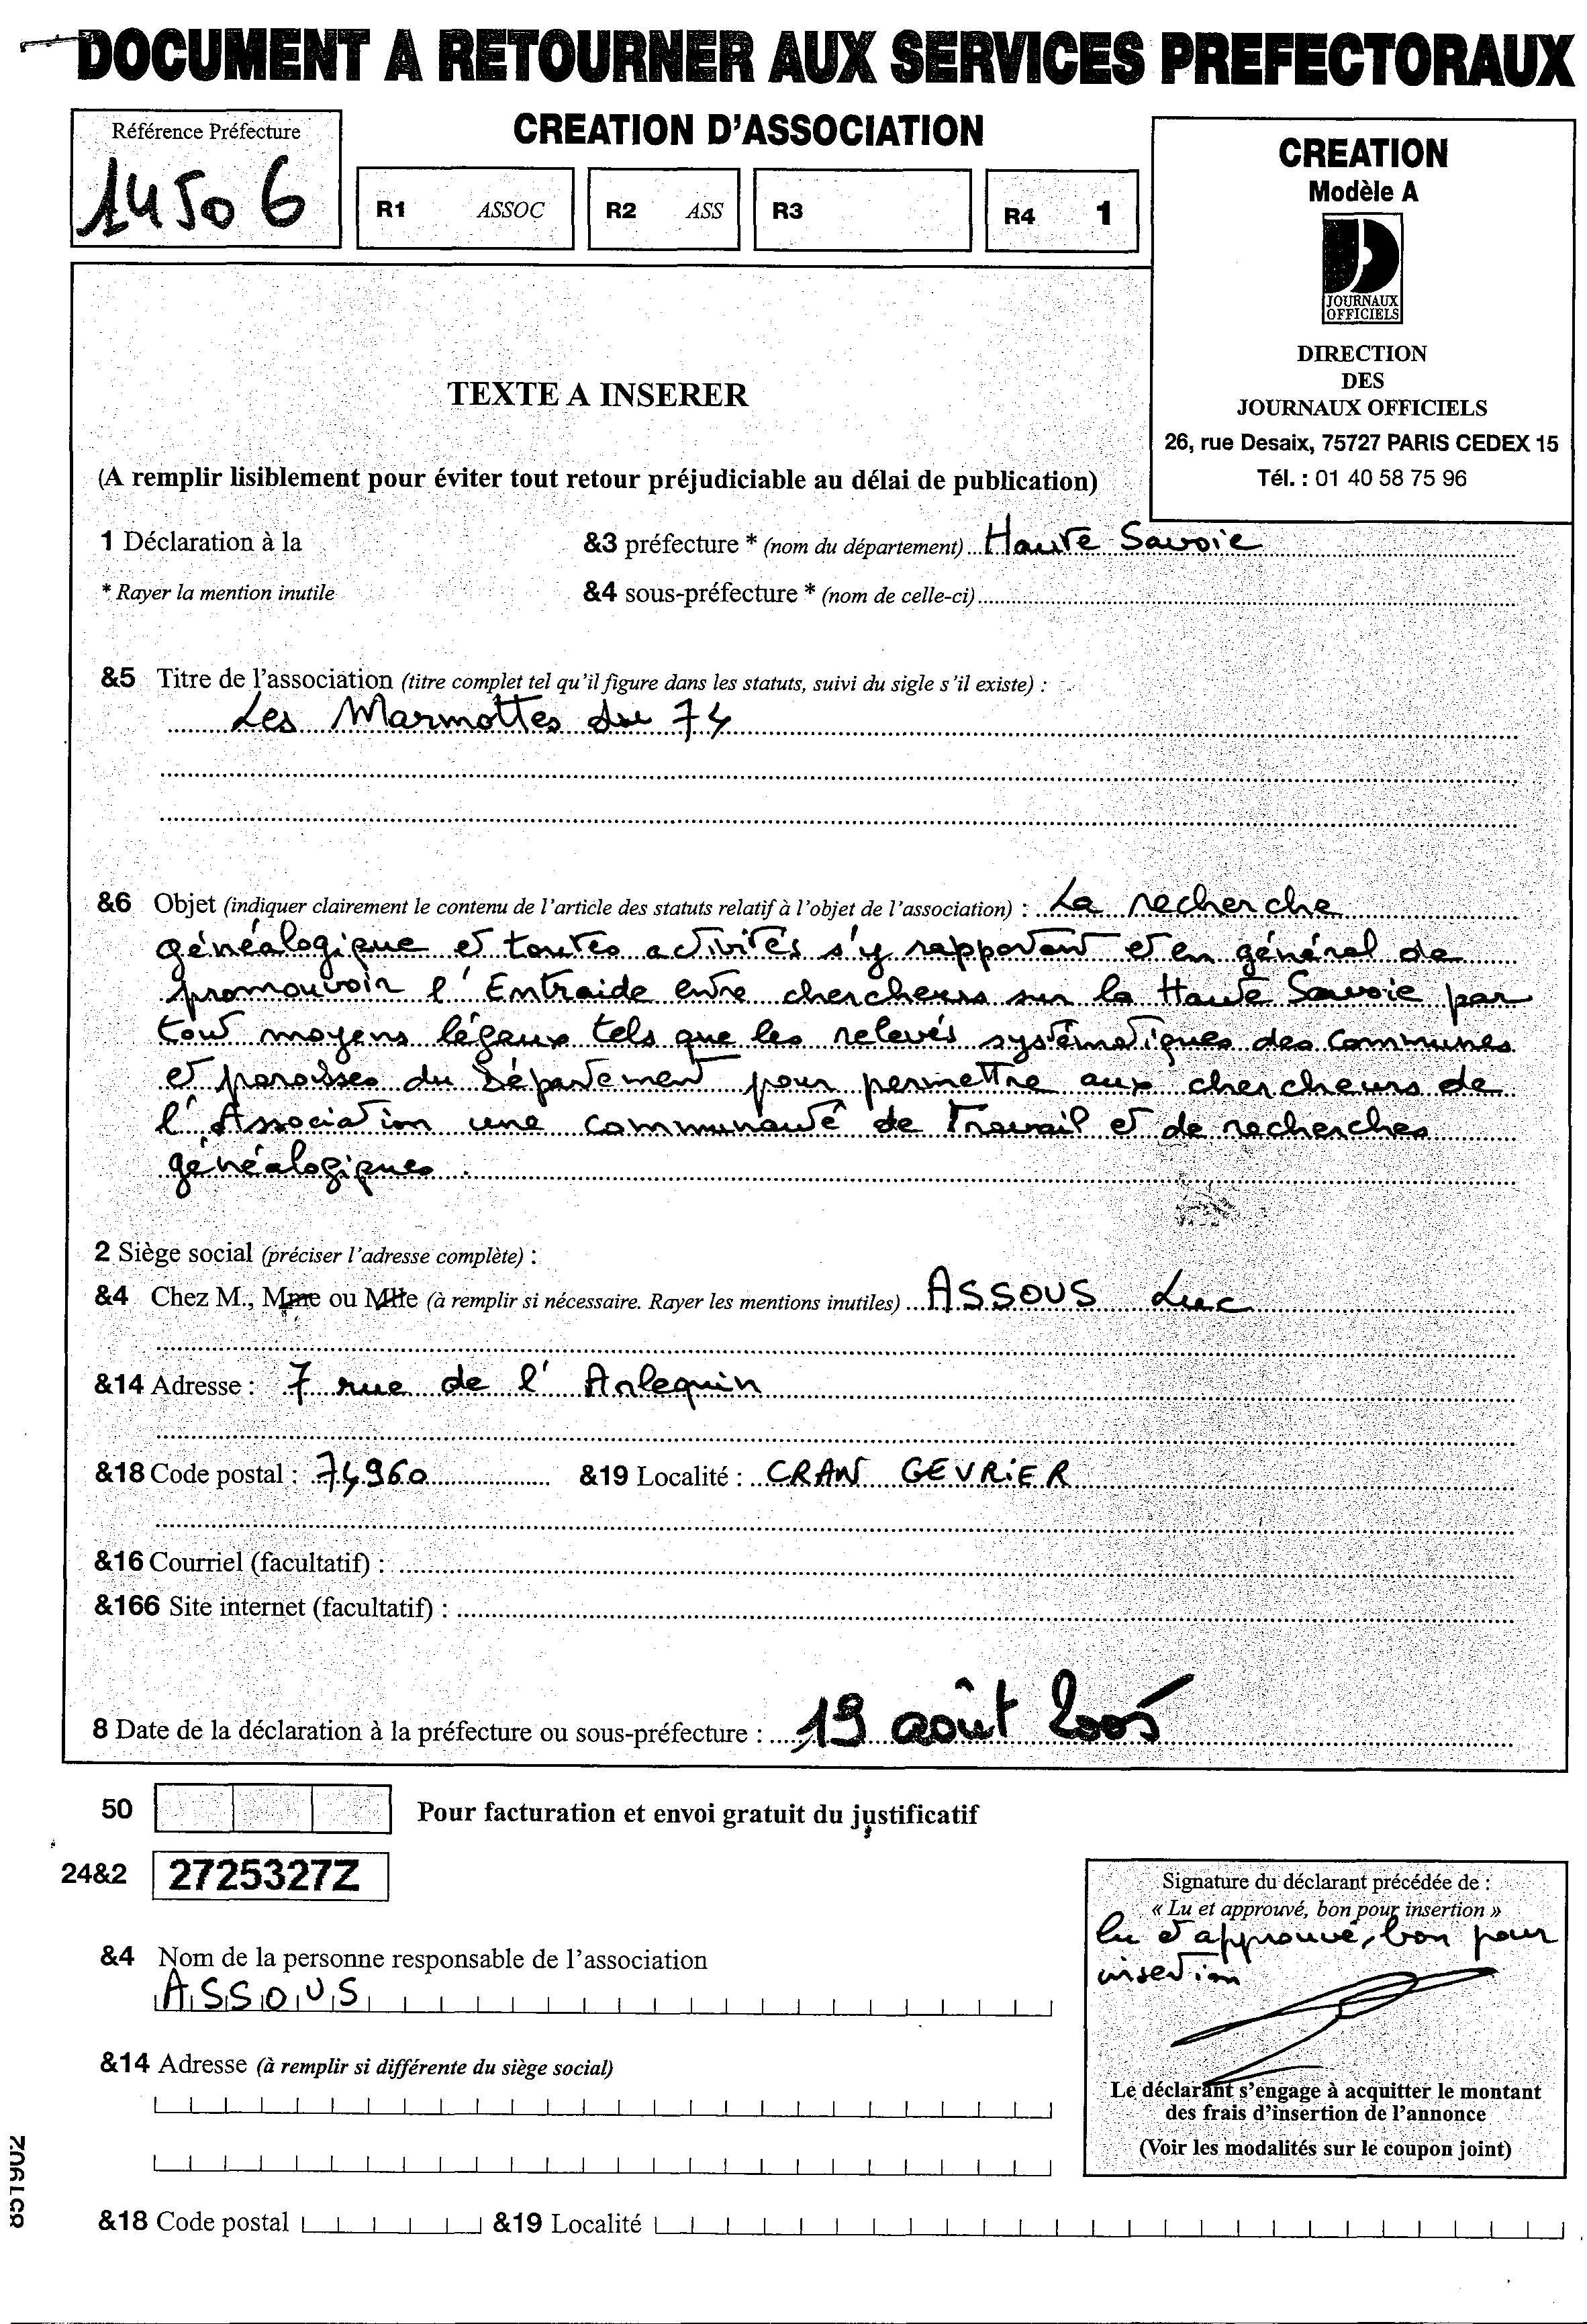 DOCUMENT A RETOURNER AUX SERVICES PREFECTORAUX
Référence Préfecture
14506
CREATION D'ASSOCIATION
R1 ASSOC
R2 ASS
R3
R4 1
CREATION
Modèle A
JOURNAUX
OFFICIELS
DIRECTION
DES
JOURNAUX OFFICIELS
26, rue Desaix, 75727 PARIS CEDEX 15
Tél. : 01 40 58 75 96
TEXTE A INSERER
(A remplir lisiblement pour éviter tout retour préjudiciable au délai de publication)
1 Déclaration à la &3 préfecture * (nom du département) Haute Savoie
* Rayer la mention inutile &4 sous-préfecture * (nom de celle-ci)
&5 Titre de l'association (titre complet tel qu'il figure dans les statuts, suivi du sigle s'il existe) :
Les Marmottes du 74
&6 Objet (indiquer clairement le contenu de l'article des statuts relatif à l'objet de l'association) : La recherche
généalogique et toutes activités s'y rapportant et en général de
promouvoir l'Entraide entre chercheurs sur la Haute Savoie par
tout moyens légaux tels que les relevés systématiques des communes
et paroisses du Département pour permettre aux chercheurs de
l'Association une communauté de Travail et de recherches
généalogiques.
2 Siège social (préciser l'adresse complète) :
&4 Chez M., Mme ou Mlle (à remplir si nécessaire. Rayer les mentions inutiles) ASSOUS Luc
&14 Adresse : 7 rue de l'Arlequin
&18 Code postal : 74960 &19 Localité : CRAN GEVRIER
&16 Courriel (facultatif) :
&166 Site internet (facultatif) :
8 Date de la déclaration à la préfecture ou sous-préfecture : 19 août 2005
50 Pour facturation et envoi gratuit du justificatif
24&2 2725327Z
Signature du déclarant précédée de :
« Lu et approuvé, bon pour insertion »
lu et approuvé, bon pour
insertion
&4 Nom de la personne responsable de l'association
ASSOUS
&14 Adresse (à remplir si différente du siège social)
Le déclarant s'engage à acquitter le montant
des frais d'insertion de l'annonce
(Voir les modalités sur le coupon joint)
&18 Code postal &19 Localité